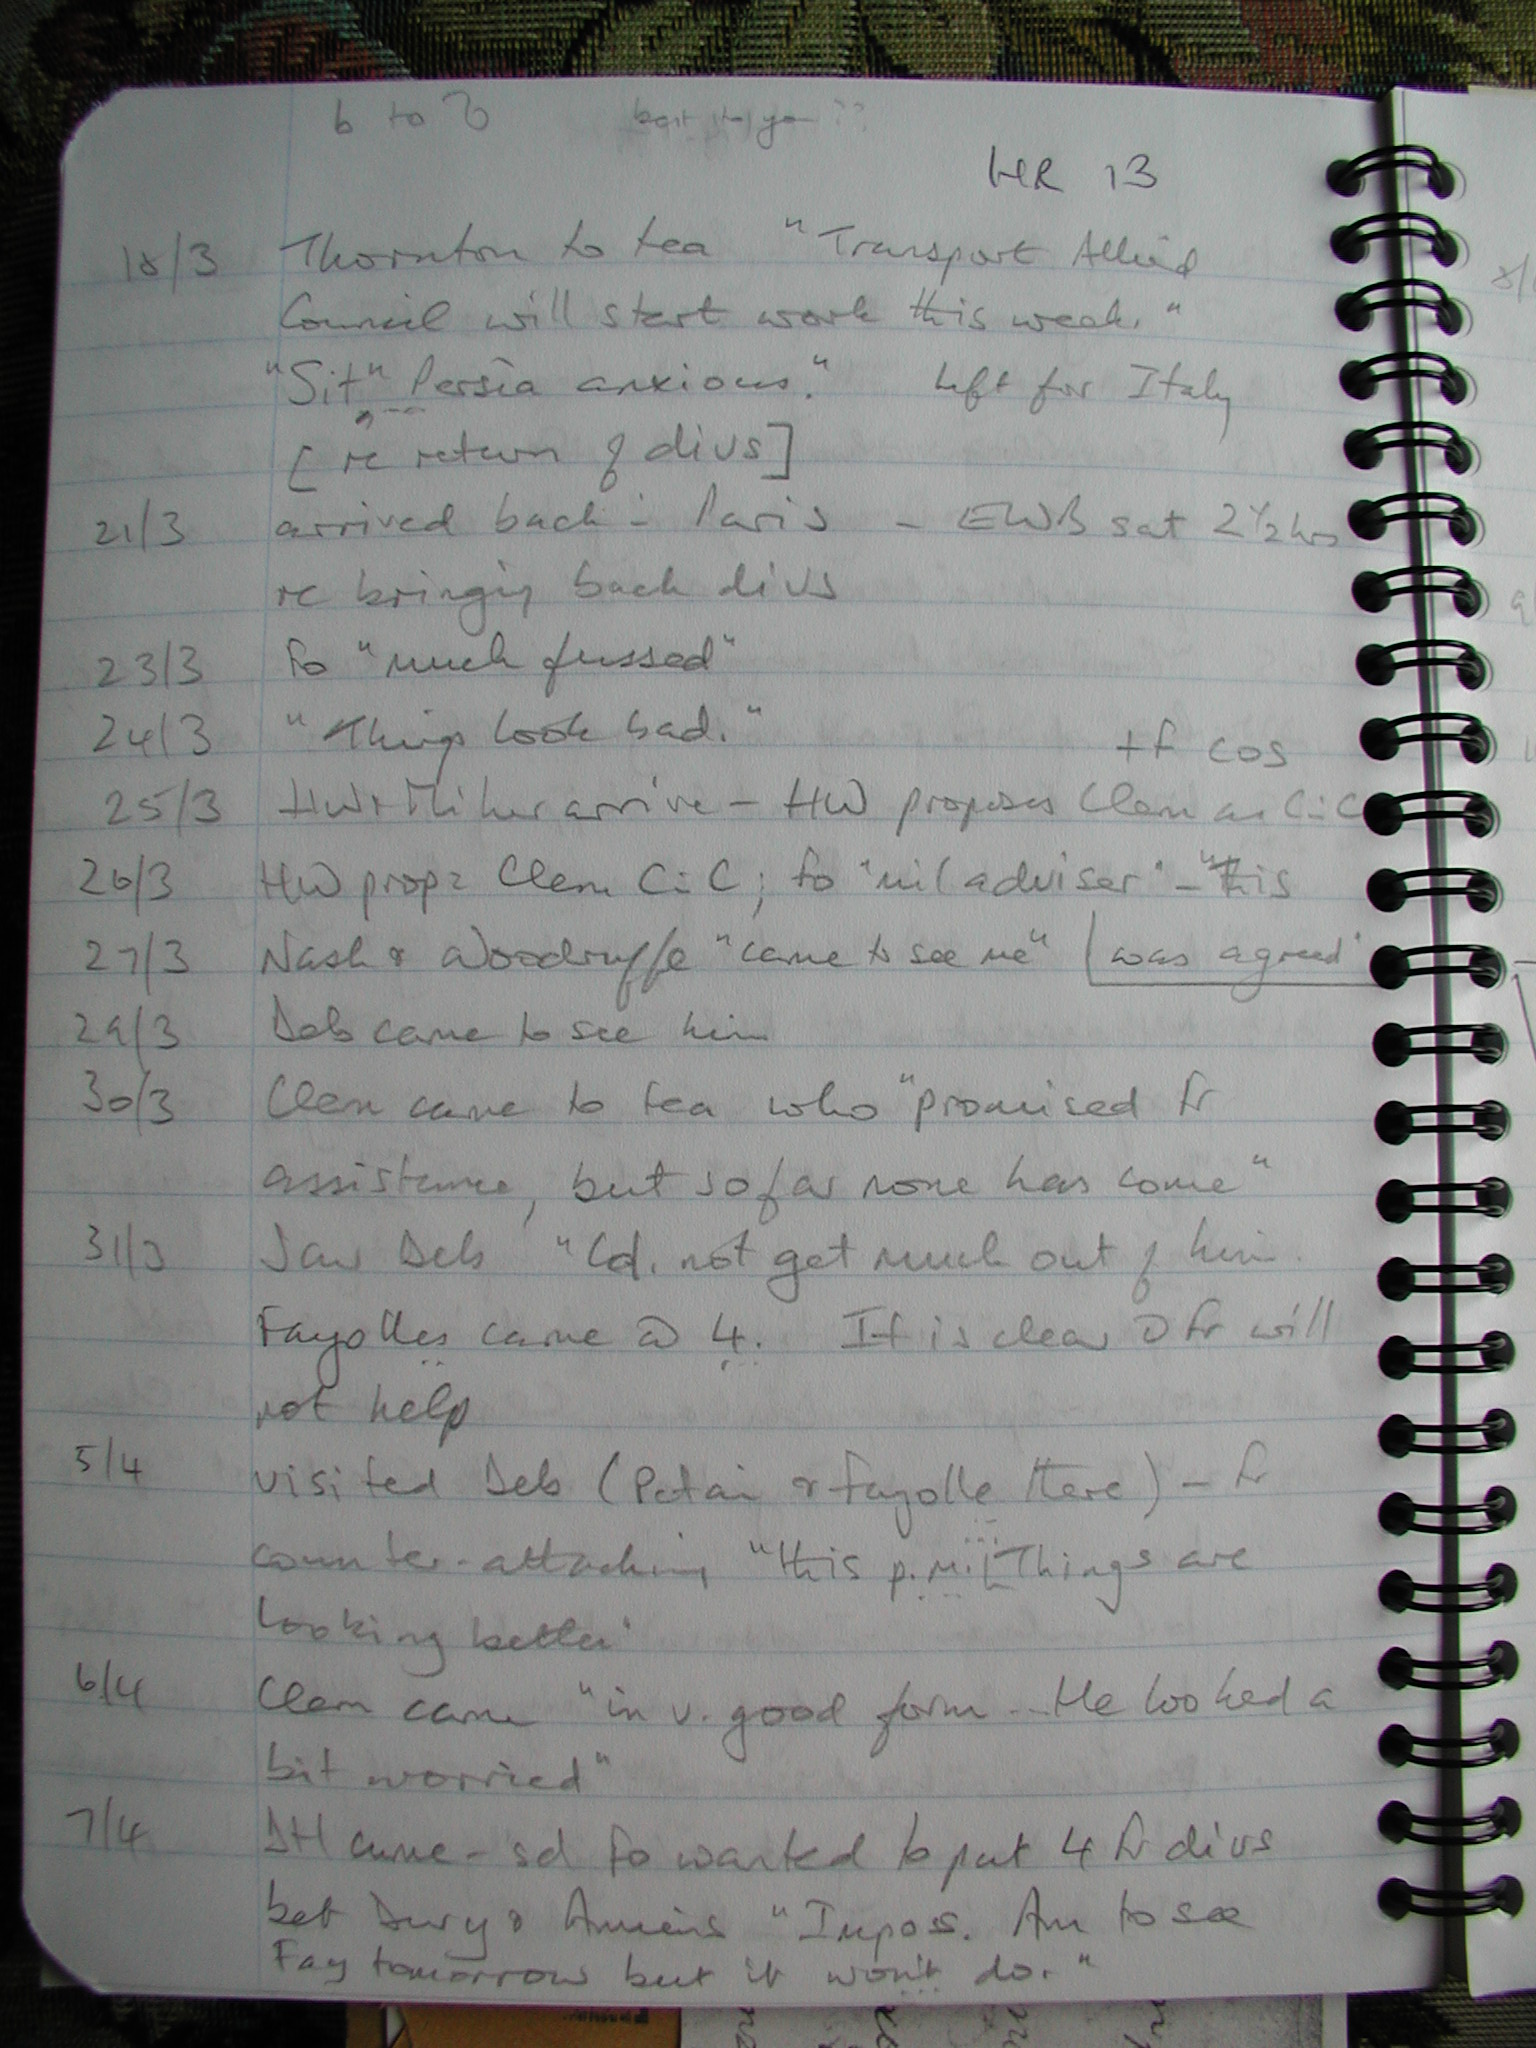 b to
HR 13
18/3 Thornton to tea "Transport Allied
Council will start work this week."
"Sit" Persia anxious." Left for Italy
[re return of divs]
21/3 arrived back - Paris - EWB sat 2½ hrs
re bringing back divs
23/3 Fo "much fussed"
24/3 "Things look bad."
+ F COS
25/3 HW + Milner arrive - HW proposes Clem as C-C
26/3 HW prop= Clem C-C; Fo "mil adviser" - "this
27/3 Nash & Woodruffe "came to see me" was agreed"
29/3 Deb came to see him
30/3 Clem came to tea who "promised Fr
assistance, but so far none has come"
31/3 Saw Deb "Cd. not get much out of him.
Fayolles came @ 4. It is clear Fr will
not help
5/4 visited Deb (Petain & Fayolle there) - Fr
counter-attacking "this p.m. [Things are
looking better"
6/4 Clem came "in v. good form ... He looked a
bit worried"
7/4 DH came - sd Fo wanted to put 4 Fr divs
bet Dury & Amiens "Impos. Am to see
Fay tomorrow but it won't do."